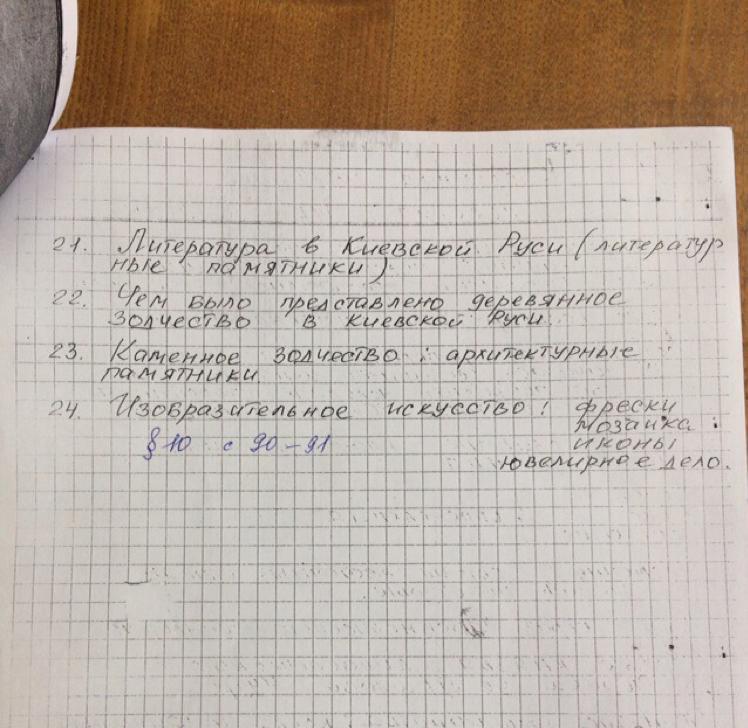 21. Литература в Киевской Руси (литератур
ные памятники)
22. Чем было представлено деревянное
зодчество в Киевской Руси.
23. Каменное зодчество: архитектурные
памятники.
24. Изобразительное искусство: фрески
мозаика
§ 10 с 90-91 иконы
ювелирное дело.